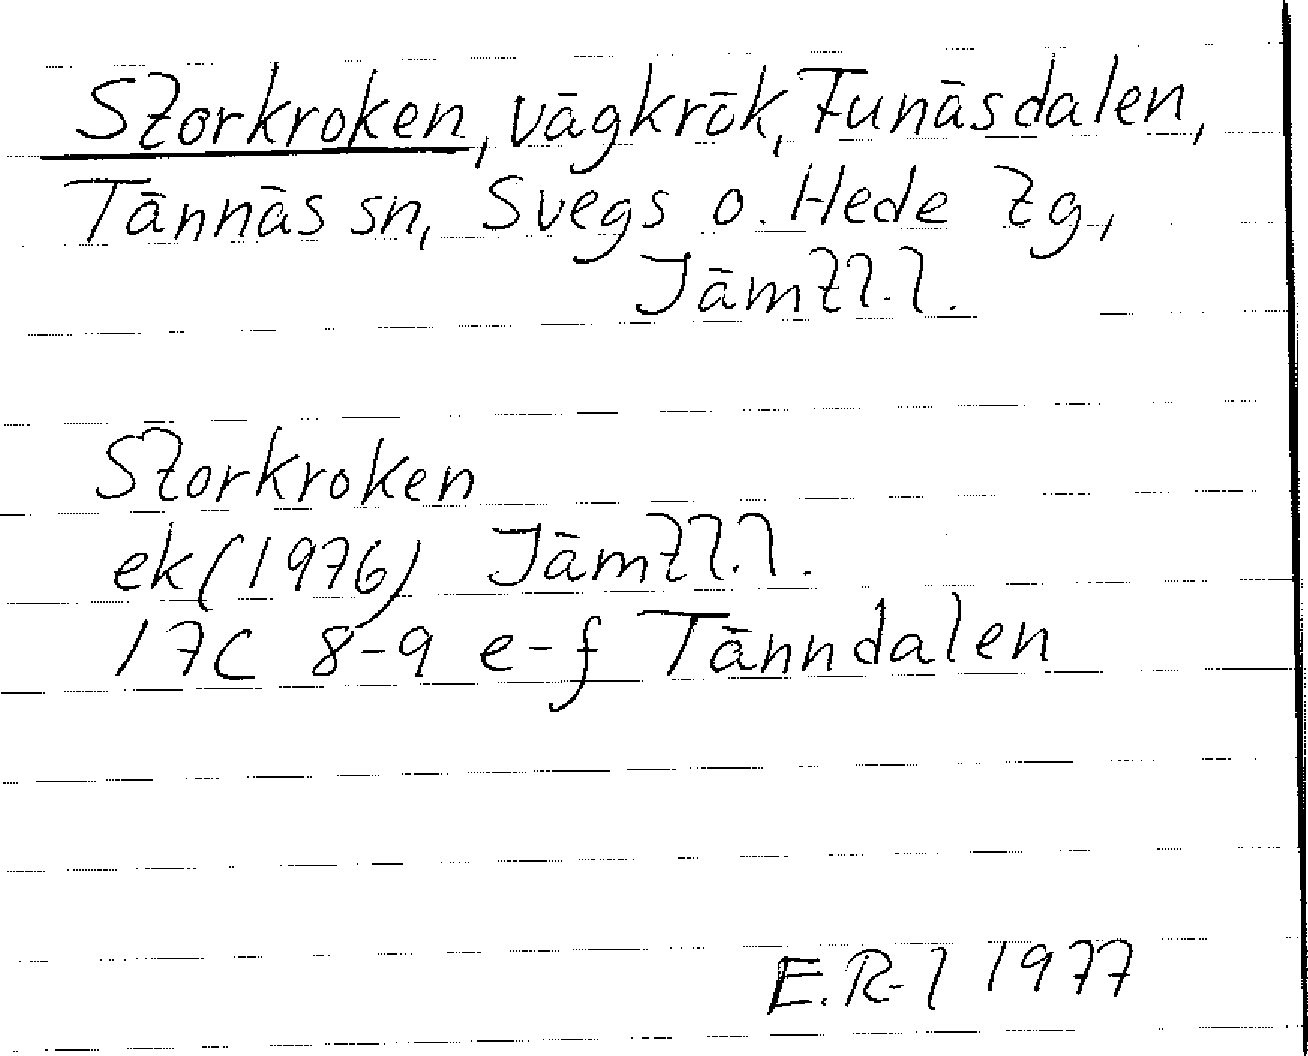 Storkroken, vägkrök, Funäsdalen,
Tännäs sn, Svegs o. Hede tg,
Jämtl.l.
Storkroken
ek (1976) Jämtl.l.
17C 8-9 e-f Tänndalen
E.R-l 1977